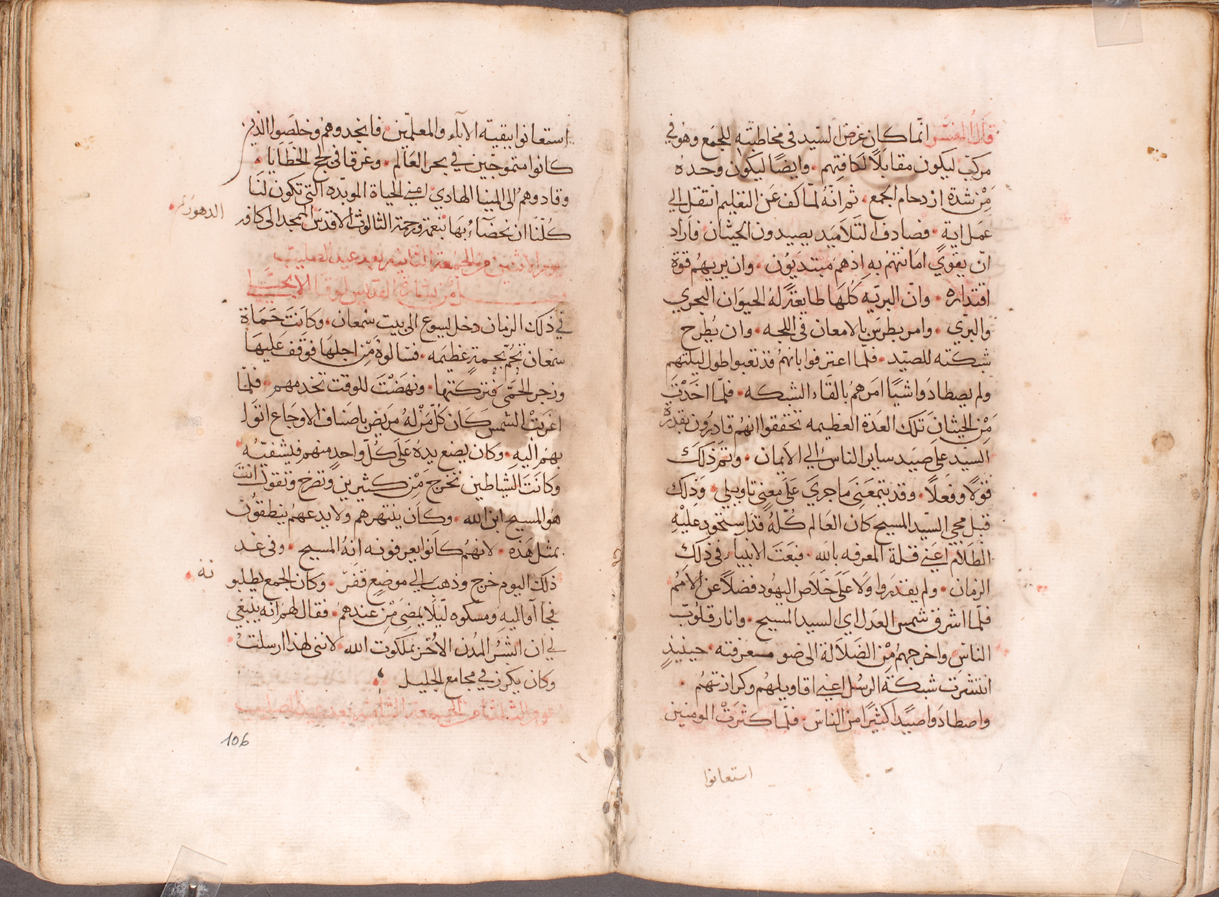 قال المفسر انما كان غرض السيد في مخاطبته للجمع وهو في
مركب ليكون مقابلًا لكافتهم • وايضًا ليكون وحده
من شدة ازدحام الجمع • ثم انه لما كف عن التعليم انتقل الى
عمل ايه • فصادف التلاميد يصيدون الحيتان • فاراد
ان يقوي امانتهم به اذ هم مبتديون • وان يريهم قوة
اقتداره • وان البريه كلها طايعة له الحيوان البحري
والبري • وامر بطرس بالامعان في اللجه • وان يطرح
شبكته للصيد • فلما اعترفوا بانهم قد تعبوا طول ليلتهم
ولم يصطادوا شيا امرهم بالقاء الشبكه • فلما اخذت
من الحيتان تلك العدة العظيمه تحققوا انهم قادرون بقدرة
السيد على صيد ساير الناس الى الايمان • وتم ذلك
قولًا وفعلًا • وقد يتمعنى ما جرى على معنى تاويلي • وذلك
قبل مجي السيد المسيح كان العالم كله قد استحود عليه
الظلام اعني قلة المعرفه بالله • فبعت الانبيا في ذلك
الزمان • ولم يقدروا ولا على خلاص اليهود فضلًا عن الامم
فلما اشرق شمس العدل اي السيد المسيح • وانار قلوب
الناس واخرجهم من الضلالة الى ضو معرفته • حينيذٍ
انتشرت شبكة الرسل اعني اقاويلهم وكرازتهم •
واصطادوا صيدًا كثيرًا من الناس • فلما كثرت المومنين
استعانوا
استعانوا ببقية الاباء والمعلمين • فانجدوهم وخلصوا الذين
كانوا متموجين في بحر العالم • وغرقا في لجج الخطايا •
وقادوهم الى المينا الهادي • اعني الحياة الموبده التي تكون لنا
كلنا ان نحضا بها بنعمة ورحمة الثالوث الاقدس الممجد الى كافة
الدهور •
في ذلك الزمان دخل يسوع الى بيت سمعان • وكانت حماة
سمعان تحم بحمة عظيمه • فسالوه من اجلها فوقف عليها
وزجر الحمى فتركتها • ونهضت للوقت تخدمهم • فلما
اغربت الشمس كان كل من له مريض باصناف الاوجاع اتوا
بهم اليه • وكان يضع يده على كل واحد منهم فيشفيه
وكانت الشياطين تخرج من كثيرين وتصرخ وتقول انت
هو المسيح ابن الله • وكان ينتهرهم ولا يدعهم ينطقون
بمثل هذه • لانهم كانوا يعرفونه انه المسيح • وفي غد
ذلك اليوم خرج وذهب الى موضع قفر • وكان الجمع يطلبو
نه •
فجاا واليه ومسكوه ليلا يمضي من عندهم • فقال لهم انه ينبغي
لي ان ابشر المدن الاخر بملكوت الله لانني لهذا ارسلت •
وكان يكرز في مجامع الجليل •
106